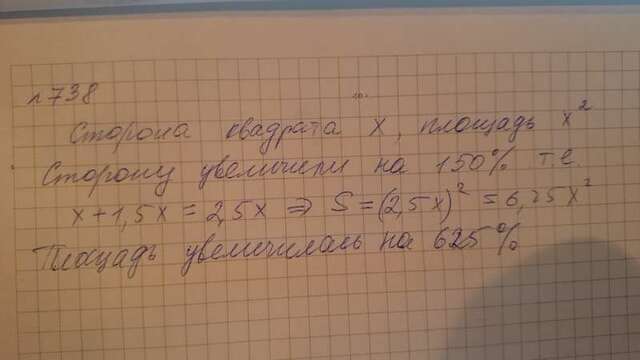 №738
Сторона квадрата x, площадь x²
Сторону увеличили на 150% т.е.
x+1,5x=2,5x ⇒ S=(2,5x)²=6,25x²
Площадь увеличилась на 625%